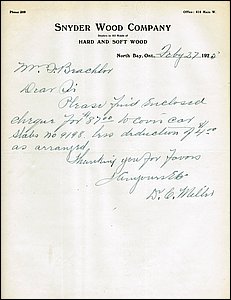 Phone 209
Office: 414 Main W.
SNYDER WOOD COMPANY
Dealers in All Kinds of
HARD AND SOFT WOOD
North Bay, Ont., Feby 27 1925
Mr. D Brachlor
Dear Sir
Please find enclosed
cheque for $87.00 to cover car
slabs no 9198. less deduction of $4.00
as arranged,
Thanking you for favors
I am yours &c
D. C. Miller